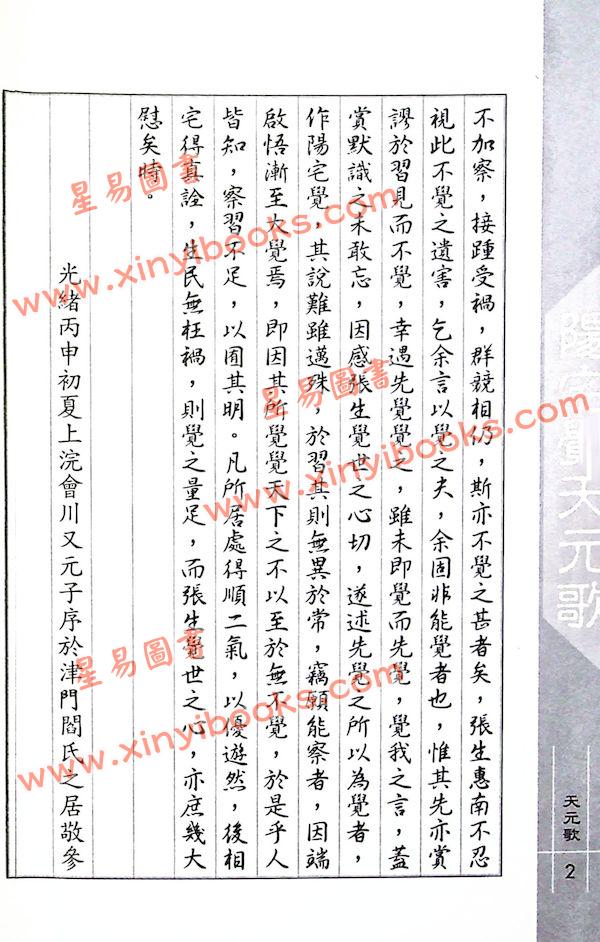 不加察，接踵受禍，群競相仍，斯亦不覺之甚者矣，張生惠南不忍
視此不覺之遺害，乞余言以覺之夫，余固非能覺者也，惟其先亦賞
謬於習見而不覺，幸遇先覺覺之，雖未即覺而先覺，覺我之言，蓋
賞默識之未敢忘，因感張生覺世之心切，遂述先覺之所以為覺者，
作陽宅覺，其說難雖邁殊，於習其則無異於常，竊願能察者，因端
啟悟漸至大覺焉，即因其所覺覺天下之不以至於無不覺，於是乎人
皆知，察習不足，以囿其明。凡所居處得順二氣，以優遊然，後相
宅得真詮，生民無枉禍，則覺之量足，而張生覺世之心，亦庶幾大
慰矣時。
光緒丙申初夏上浣會川又元子序於津門閻氏之居敬參
陽宅覺天元歌
天元歌
2
星易圖書
www.xinyibooks.com
星易圖書
www.xinyibooks.com
星易圖書
www.xinyibooks.com